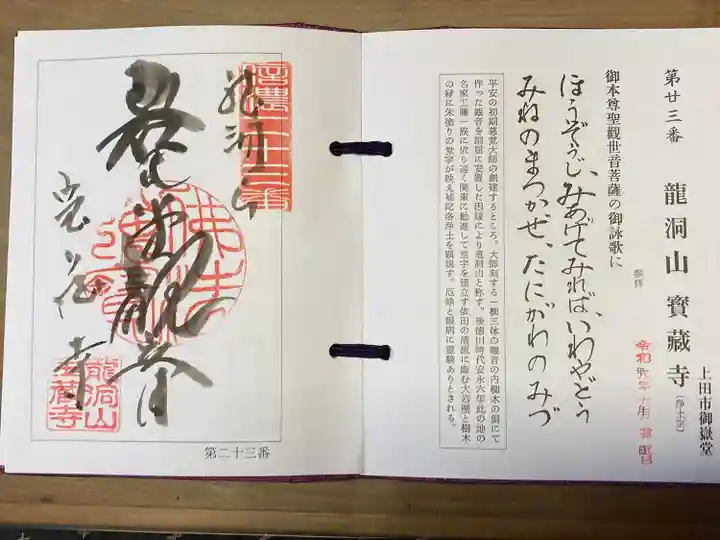 第廿三番
龍洞山 寶藏寺(浄土宗)
上田市御嶽堂
参拝
御本尊聖觀世音菩薩の御詠歌に
ほうぞうじ、みあげてみれば、いわやどう
みねのまつかぜ、たにがわのみづ
平安の初期慈覚大師の創建するところ。大師刻する一樹三体の観音の内樹木の胴にて
作った観音を厨屈に安置した因縁により竜洞山と称す。後徳川時代安永六年此の地の
名家工藤一族に依り遠く関東に勧進して堂宇を建立す依田の清流に臨む大岩棚と樹木
の緑に朱塗りの堂宇が映え補陀洛浄土を顕現す。厄除と眼病に霊験ありとされる。
信濃二十三番
龍洞山
岩谷堂觀音
宝蔵寺
佛法僧寶
龍洞山
宝蔵寺
第二十三番